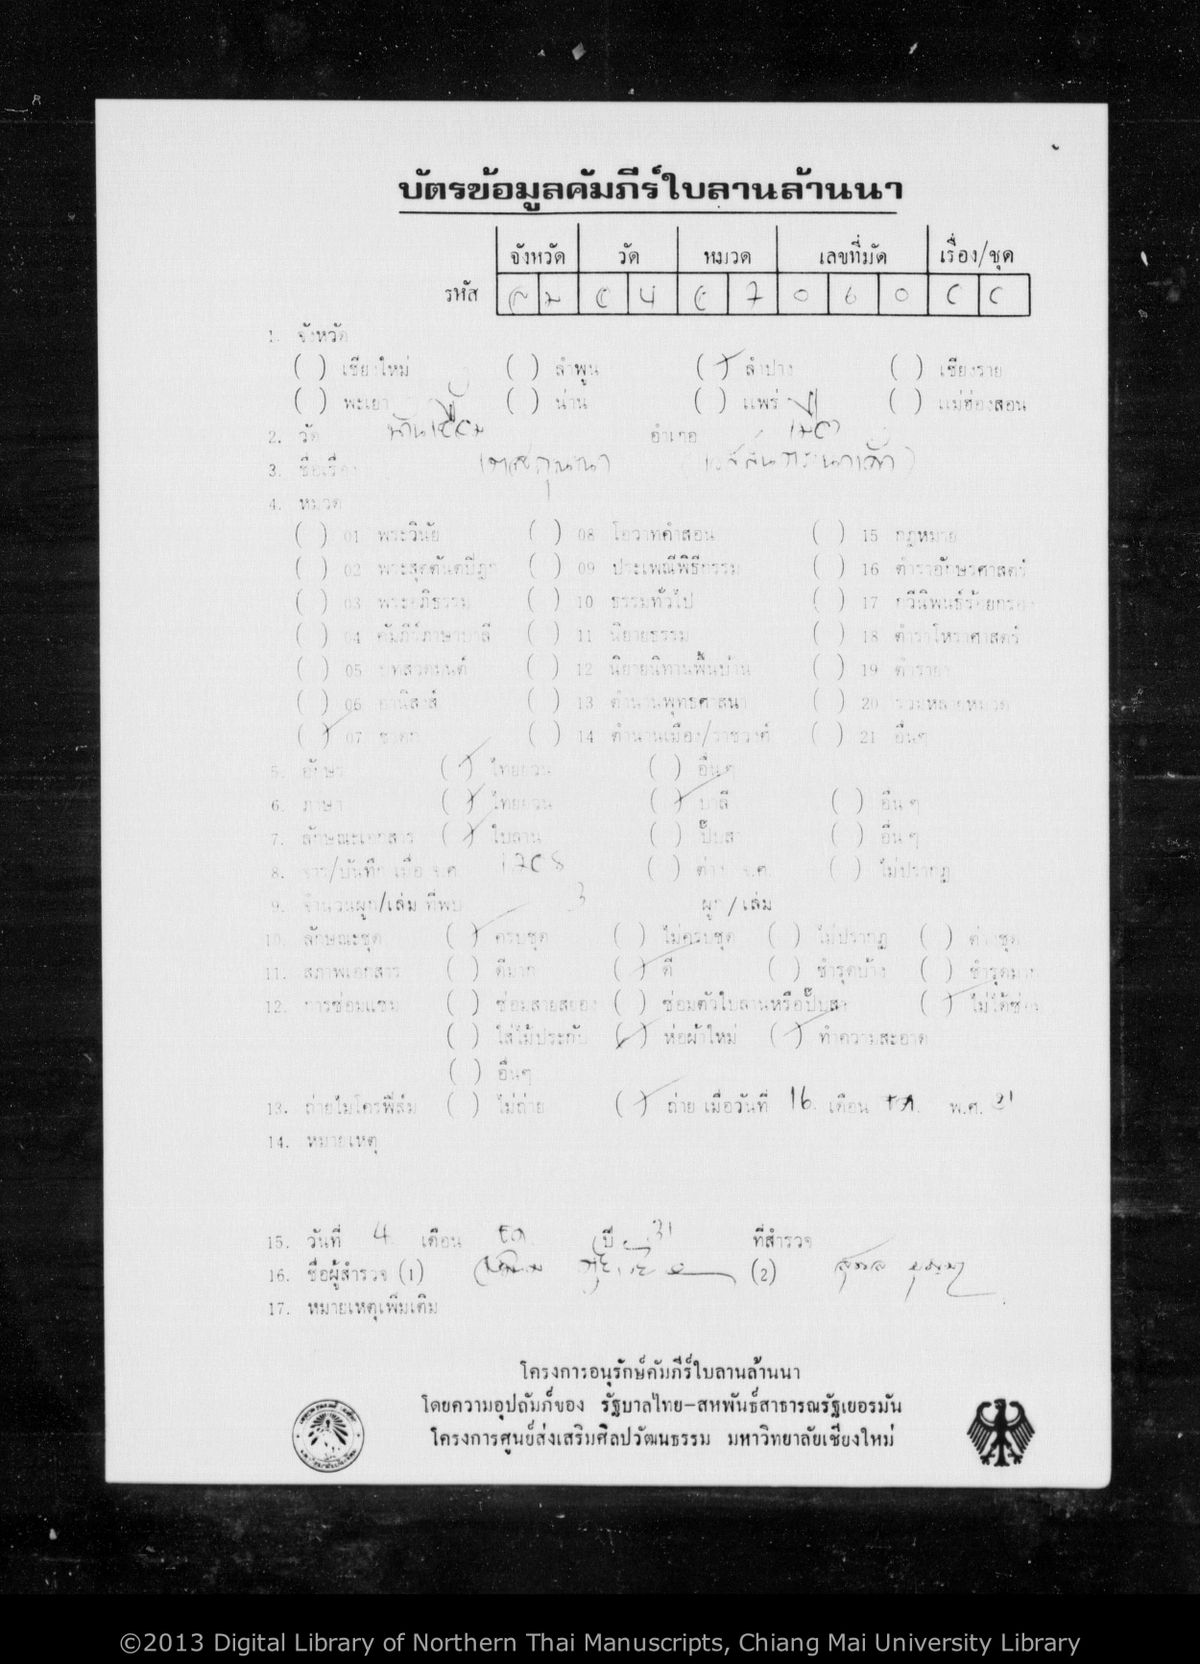 บัตรข้อมูลคัมภีร์ใบลานล้านนา
จังหวัด วัด หมวด เลขที่มัด เรื่อง/ชุด
รหัส 7 0 6 0
1. จังหวัด
( ) เชียงใหม่ ( ) ลำพูน (✓) ลำปาง ( ) เชียงราย
( ) พะเยา ( ) น่าน ( ) แพร่ ( ) แม่ฮ่องสอน
2. วัด อำเภอ
3. ชื่อเรื่อง
4. หมวด
( ) 01 พระวินัย ( ) 08 โอวาทคำสอน ( ) 15 กฎหมาย
( ) 02 พระสุตตันตปิฎก ( ) 09 ประเพณีพิธีกรรม ( ) 16 ตำราอักษรศาสตร์
( ) 03 พระอภิธรรม ( ) 10 ธรรมทั่วไป ( ) 17 กวีนิพนธ์ร้อยกรอง
( ) 04 คัมภีร์ภาษาบาลี ( ) 11 นิยายธรรม ( ) 18 ตำราโหราศาสตร์
( ) 05 บทสวดมนต์ ( ) 12 นิยายนิทานพื้นบ้าน ( ) 19 ตำรายา
( ) 06 อานิสงส์ ( ) 13 ตำนานพุทธศาสนา ( ) 20 รวมหลายหมวด
(✓) 07 ชาดก ( ) 14 ตำนานเมือง/ราชวงศ์ ( ) 21 อื่นๆ
5. อักษร (✓) ไทยยวน ( ) อื่น ๆ
6. ภาษา (✓) ไทยยวน (✓) บาลี ( ) อื่น ๆ
7. ลักษณะเอกสาร (✓) ใบลาน ( ) ปั๊บสา ( ) อื่น ๆ
8. จาร/บันทึก เมื่อ จ.ศ. ( ) ต่าง จ.ศ. ( ) ไม่ปรากฏ
9. จำนวนผูก/เล่ม ที่พบ 3 ผูก/เล่ม
10. ลักษณะชุด (✓) ครบชุด ( ) ไม่ครบชุด ( ) ไม่ปรากฏ ( ) ต่างชุด
11. สภาพเอกสาร ( ) ดีมาก (✓) ดี ( ) ชำรุดบ้าง ( ) ชำรุดมาก
12. การซ่อมแซม ( ) ซ่อมสายสยอง ( ) ซ่อมตัวใบลานหรือปั๊บสา (✓) ไม่ได้ซ่อม
( ) ใส่ไม้ประกับ (✓) ห่อผ้าใหม่ (✓) ทำความสะอาด
( ) อื่นๆ
13. ถ่ายไมโครฟิล์ม ( ) ไม่ถ่าย (✓) ถ่าย เมื่อวันที่ 16 เดือน พ.ศ.
14. หมายเหตุ
15. วันที่ 4 เดือน ปี 31 ที่สำรวจ
16. ชื่อผู้สำรวจ (1) (2)
17. หมายเหตุเพิ่มเติม
โครงการอนุรักษ์คัมภีร์ใบลานล้านนา
โดยความอุปถัมภ์ของ รัฐบาลไทย-สหพันธ์สาธารณรัฐเยอรมัน
โครงการศูนย์ส่งเสริมศิลปวัฒนธรรม มหาวิทยาลัยเชียงใหม่
©2013 Digital Library of Northern Thai Manuscripts, Chiang Mai University Library